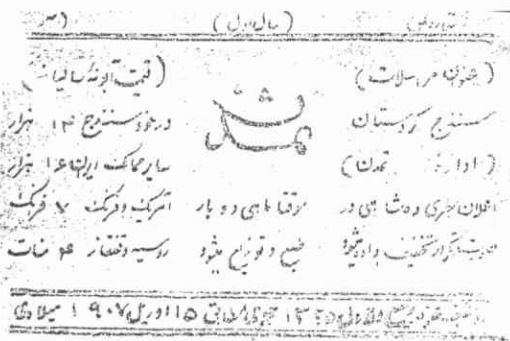 (سال اول)
(عنوان مراسلات)
سنندج کردستان
(اداره تمدن)
اعلان سطری ده شاهی در
تکرار تخفیف داده میشود
تمدن
موقتا ماهی دو بار
طبع و توزیع میشود
(قیمت آبونه سالیانه)
در خود سنندج ۱۲ هزار
سایر ممالک ایران ۱۶ هزار
آمریک و فرنگ ۷ فرنگ
روسیه و قفقاز ۴ منات
۱۳۲۵ هجری مطابق ۱۵ اوریل ۱۹۰۷ میلادی